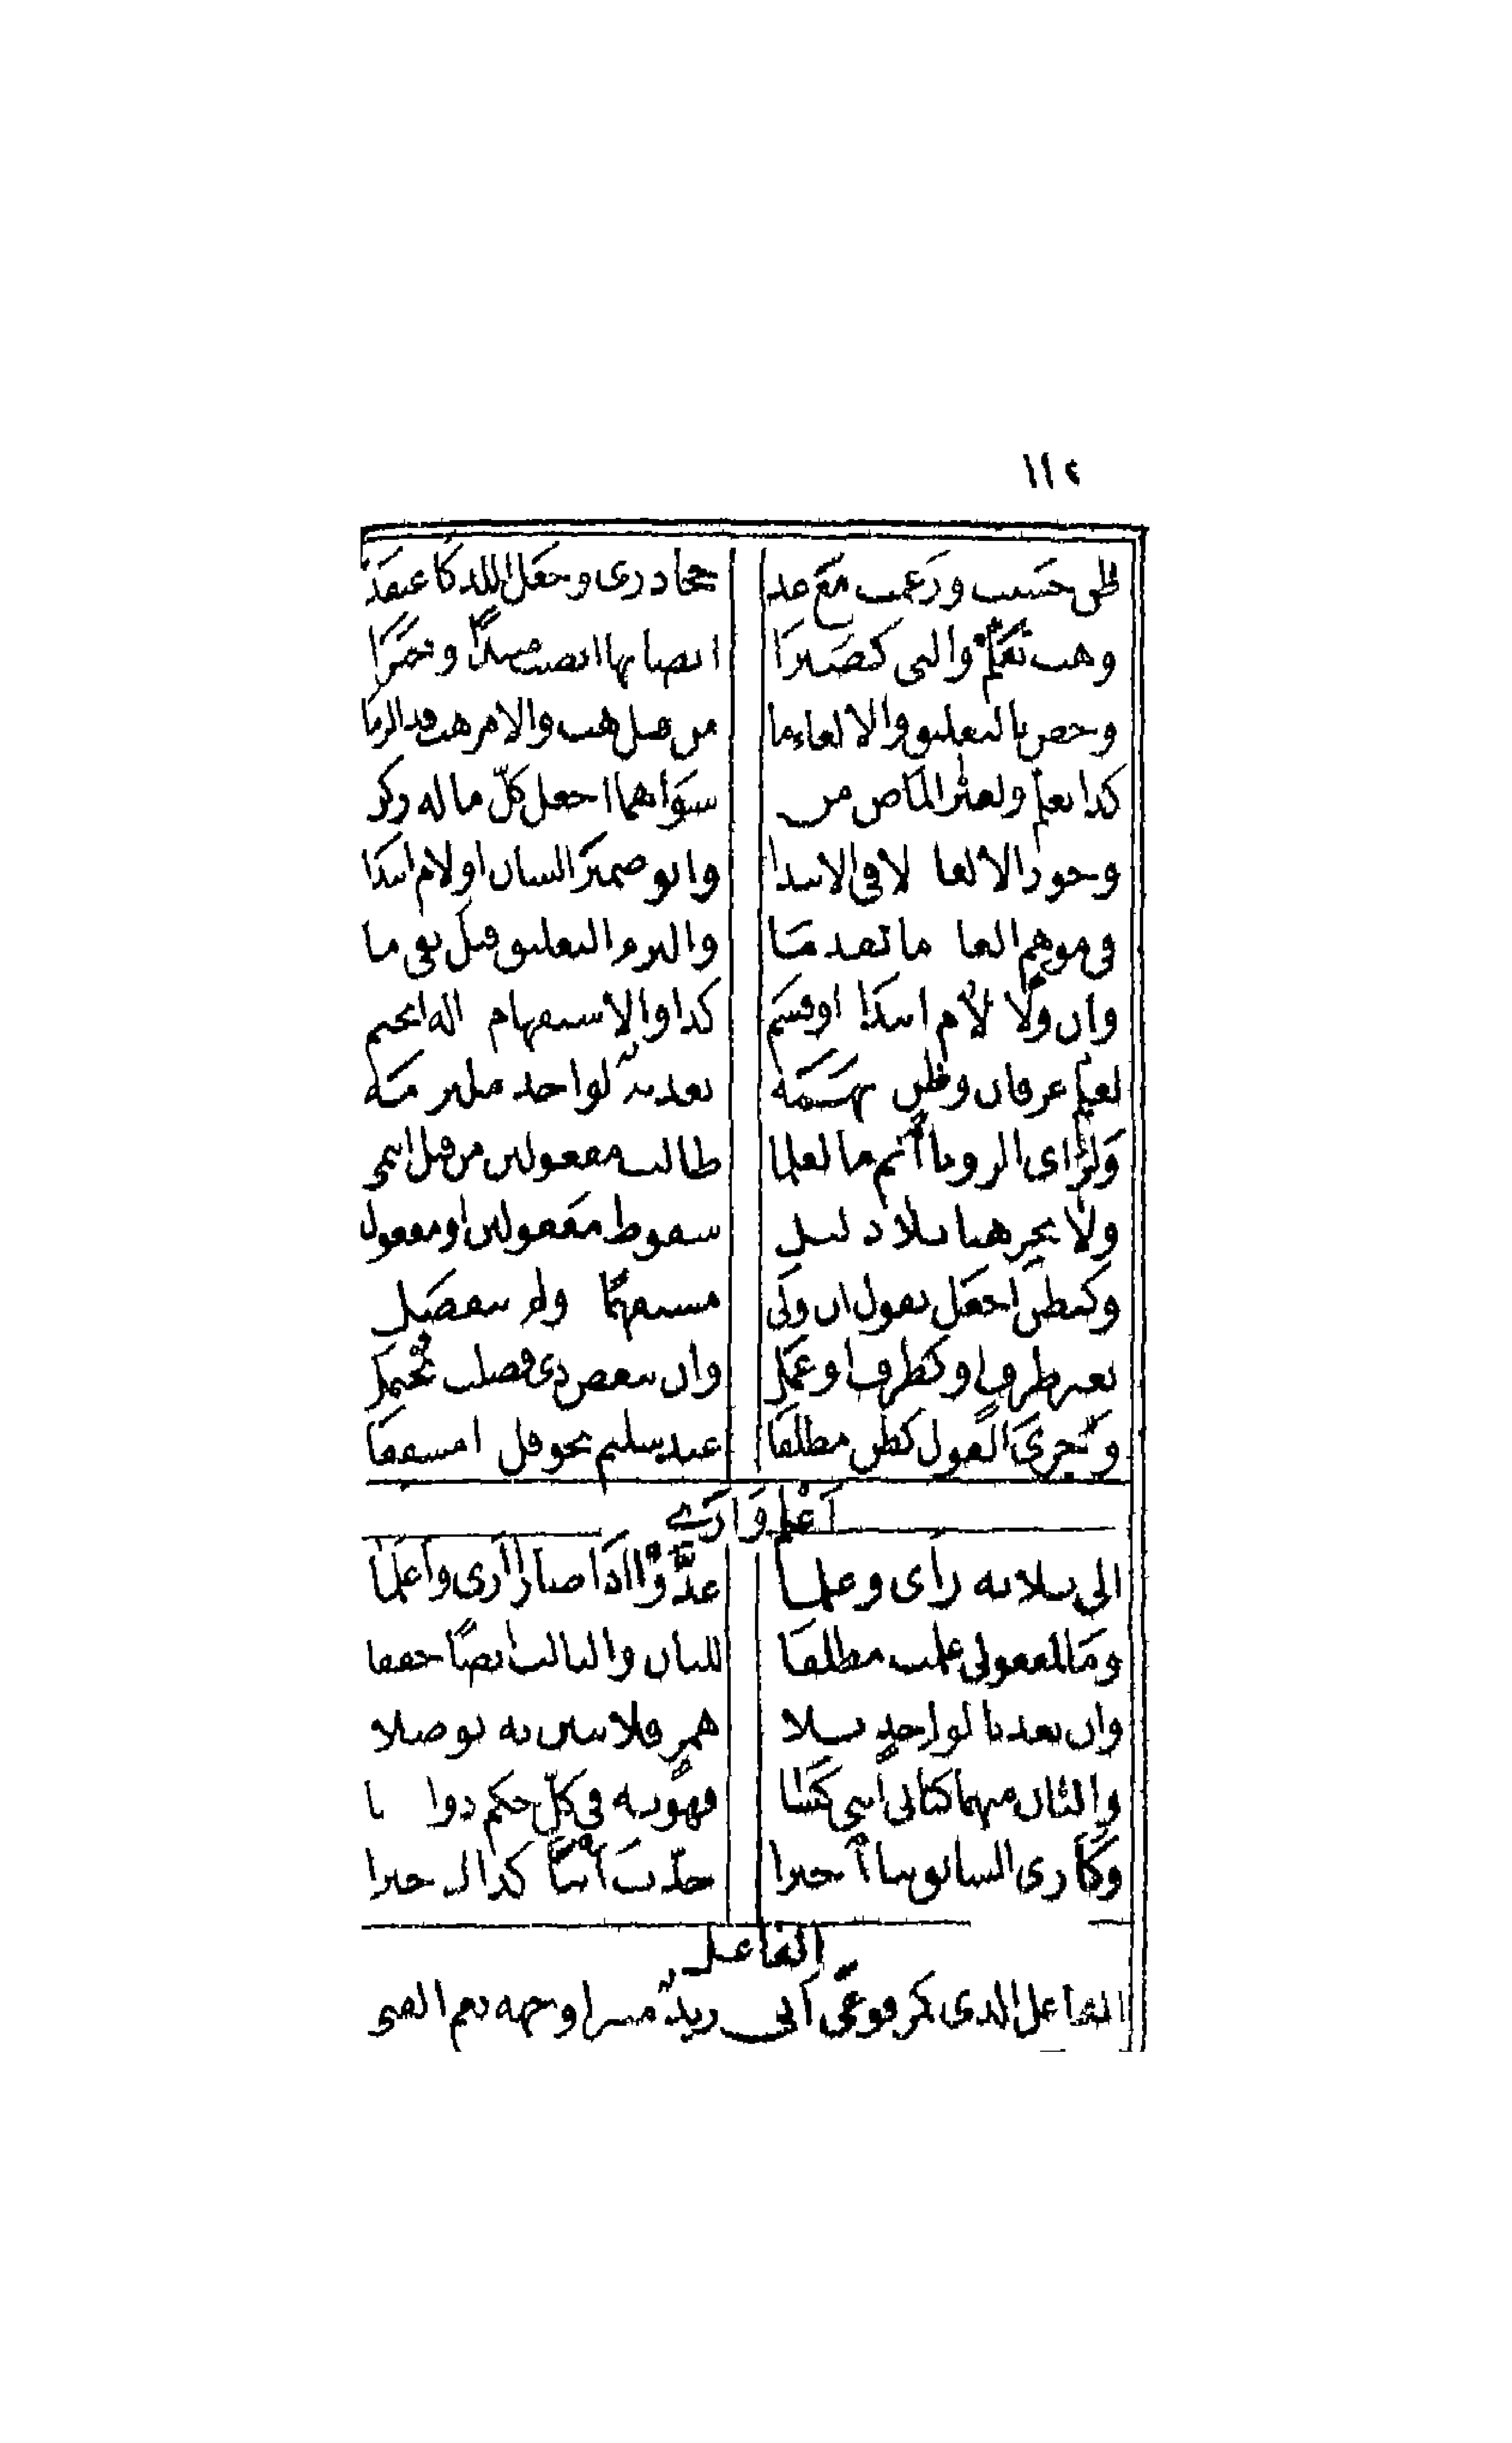 ١١٢
ظن حسبت وزعمت مع عد حجا درى وجعل اللذ كاعتقد
وهب تعلم والتى كصيرا ايضا بها انصب مبتدا وخبرا
وخص بالتعليق والالغاء ما من قبل هب والامر هب قد الزما
كذا تعلم ولغير الماض من سواهما اجعل كل ما له زكن
وجوز الالغا لا فى الابتدا وانو ضمير الشان او لام ابتدا
فى موهم الغا ما تقدما والتزم التعليق قبل نفى ما
وان ولا لام ابتدا او قسم كذا والاستفهام ذا له انحتم
لعلم عرفان وظن تهمه تعدية لواحد ملتزمه
ولراى الرويا انم ما لعلما طالب مفعولين من قبل انتمى
ولا تجز هنا بلا دليل سقوط مفعولين او مفعول
وكتظن اجعل تقول ان ولى مستفهما به ولم ينفصل
بغير ظرف او كظرف او عمل وان ببعض ذى فصلت يحتمل
واجرى القول كظن مطلقا عند سليم نحو قل ذا مشفقا
اعلم وارى
الى ثلاثة راى وعلما عدوا اذا صارا ارى واعلما
وما لمفعولى علمت مطلقا للثان والثالث ايضا حققا
وان تعديا لواحد بلا همز فلاثنين به توصلا
والثان منهما كثانى اثنى كسا فهو به فى كل حكم ذو ائتسا
وكارى السابق نبا اخبرا حدث انبا كذاك خبرا
الفاعل
الفاعل الذى كمرفوعى اتى زيد منيرا وجهه نعم الفتى